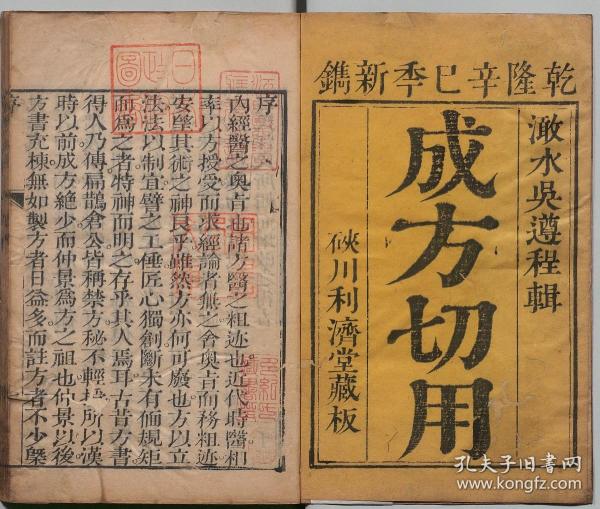 乾隆辛巳季新鐫
澉水吳遵程輯
成方切用
硤川利濟堂藏板
序
內經醫之奧旨也諸方醫之粗迹也近代時醫相
率以方授受而求經論者無之舍奧旨而務粗迹
安望其術之神良乎雖然方亦何可廢也方以立
法法以制宜譬之工倕匠心獨創斷未有偭規矩
而為之者特神而明之存乎其人焉耳古昔方書
得人乃傳扁鵲倉公皆稱禁方秘不輕授所以漢
時以前成方絕少而仲景為方之祖也仲景以後
方書充棟無如製方者日益多而註方者不少槩
孔夫子旧书网
www.kongfz.com